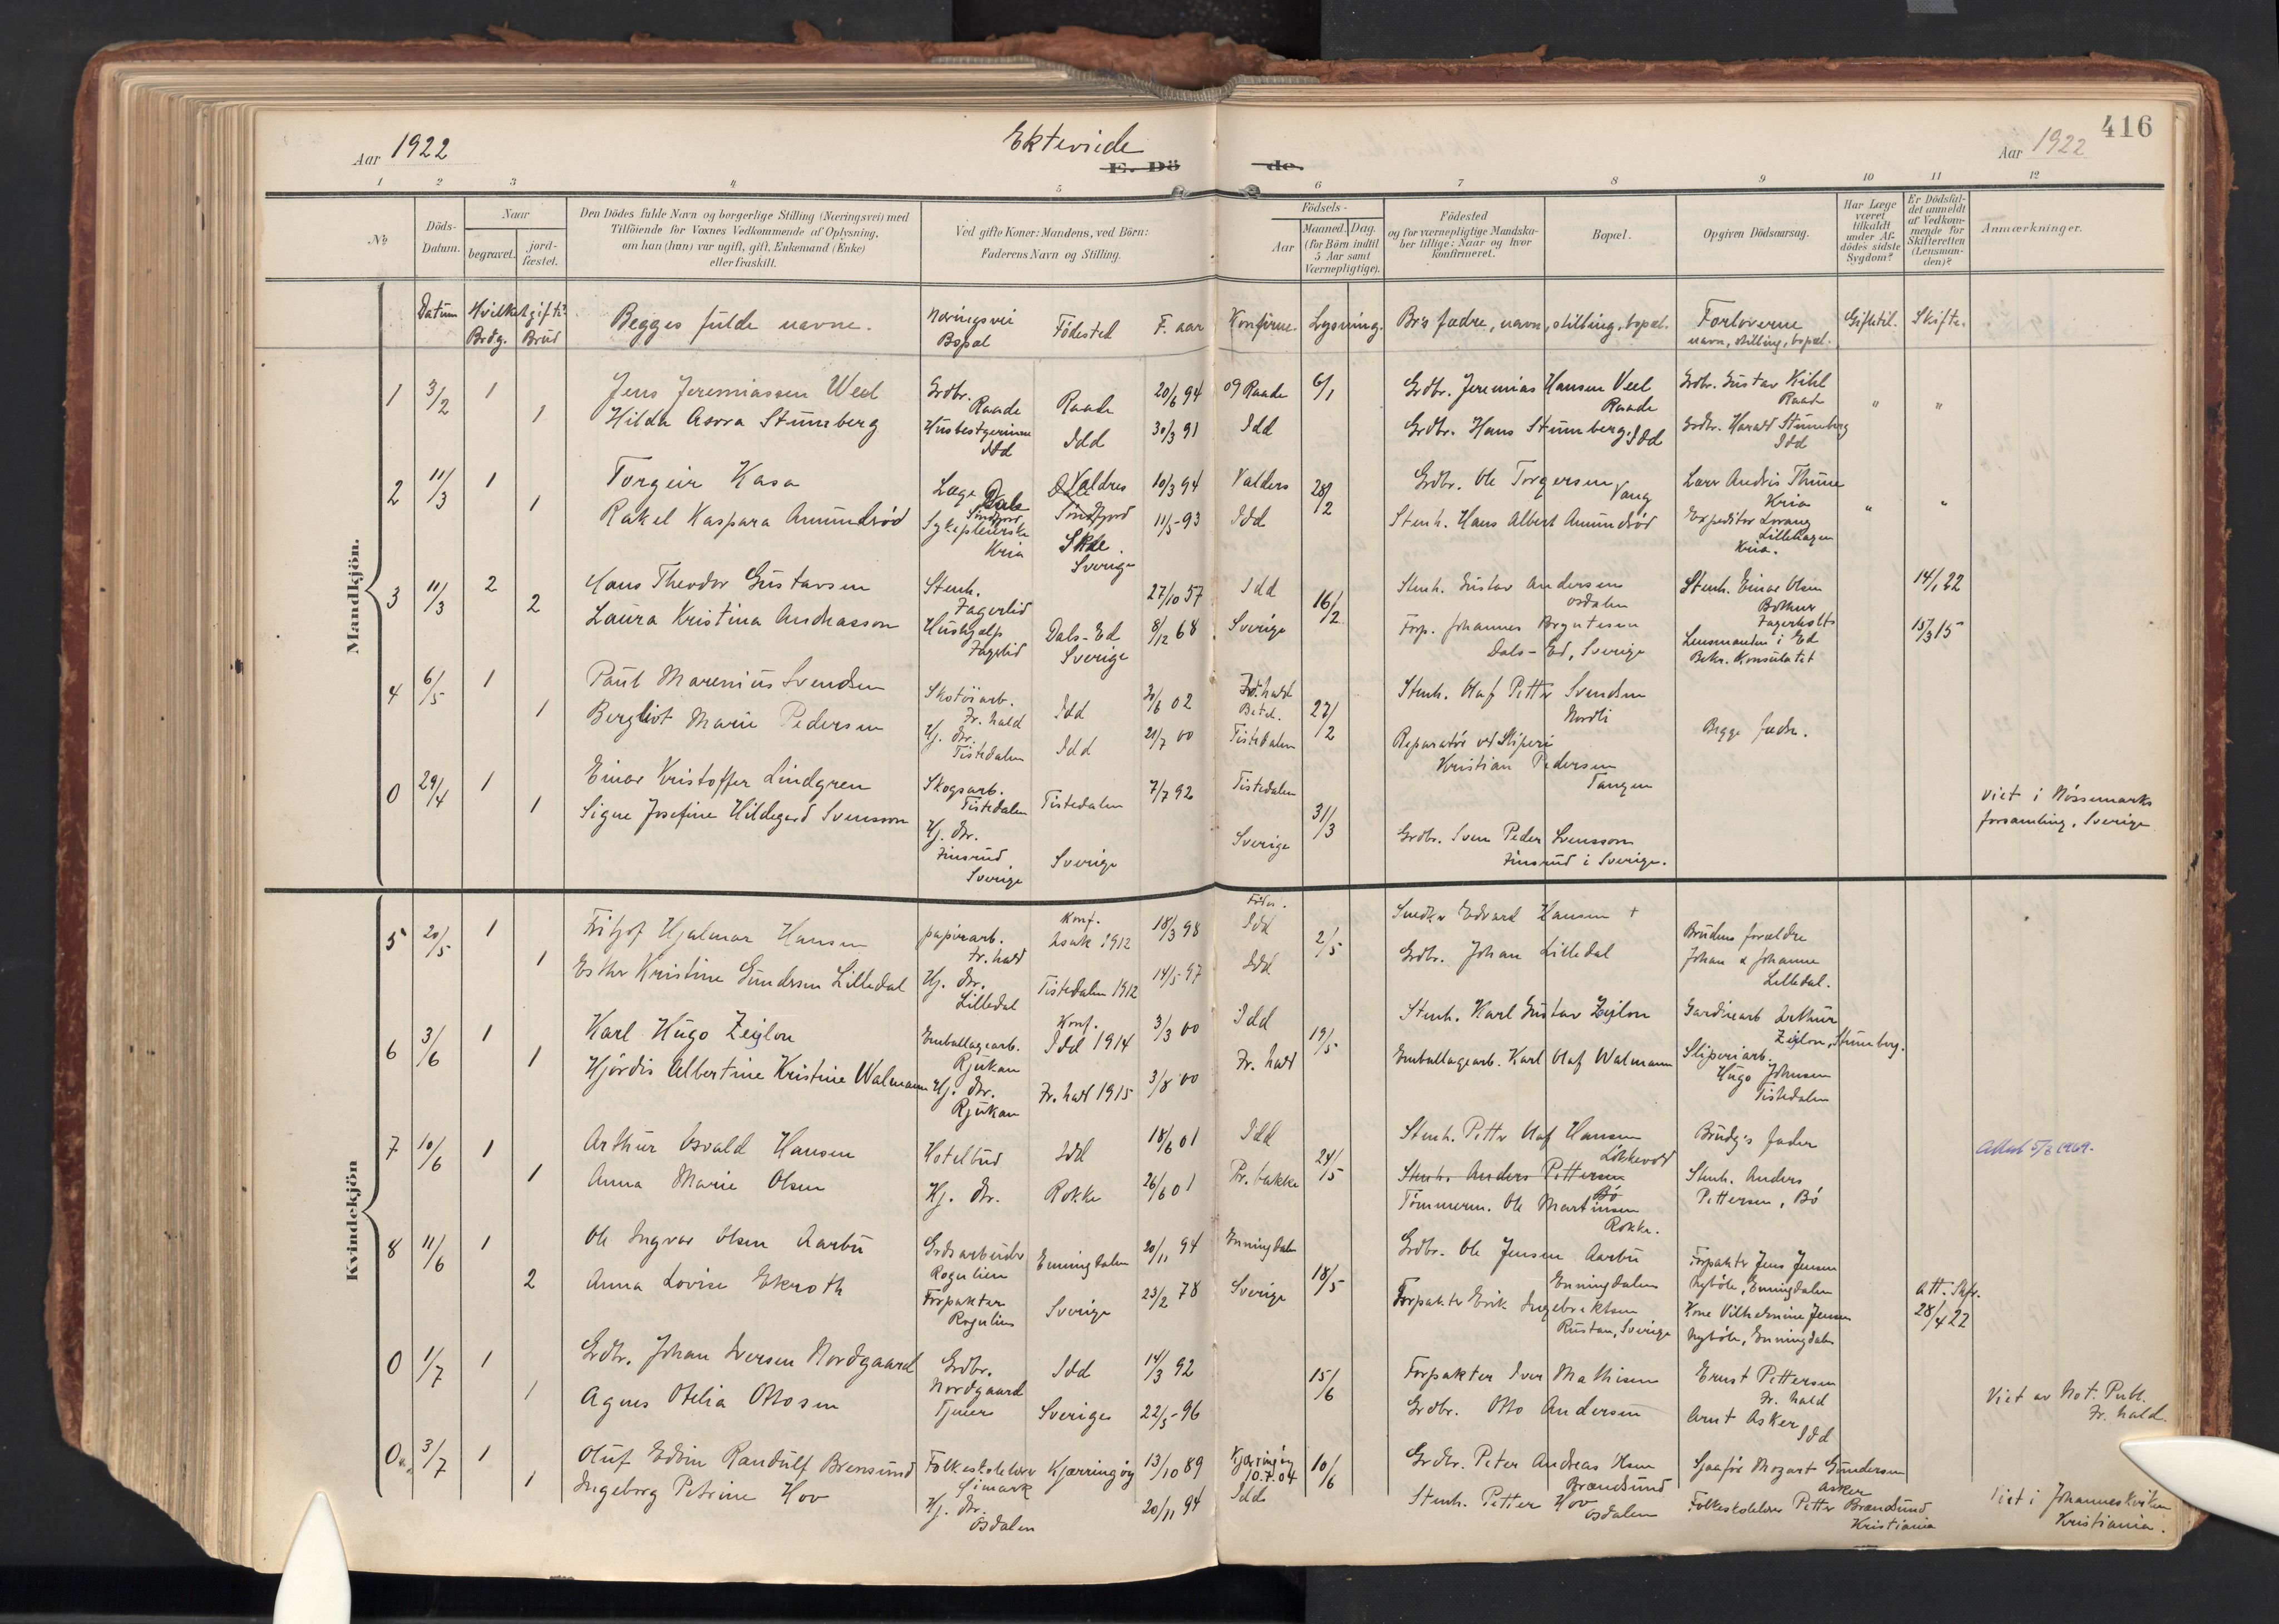 416
Aar 1922
Ektevide
E. Döde.
Aar 1922
1 2 3 4 5 6 7 8 9 10 11 12
No
Döds-Datum.
Naar
begravet.
jord-fæstet.
Den Dödes fulde Navn og borgerlige Stilling (Næringsvei) med
Tilföiende for Voxnes Vedkommende af Oplysning,
om han (hun) var ugift, gift, Enkemand (Enke)
eller fraskilt.
Ved gifte Koner: Mandens, ved Börn:
Faderens Navn og Stilling.
Födsels-
Aar
Maaned. Dag.
(for Börn indtil
5 Aar samt
Værnepligtige).
Födested
og for værnepligtige Mandska-
ber tillige: Naar og hvor
konfirmeret.
Bopæl.
Opgiven Dödsaarsag.
Har Læge
været
tilkaldt
under Af-
dödes sidste
Sygdom?
Er Dödsfal-
det anmeldt
af Vedkom-
mende for
Skifteretten
(Lensman-
den)?
Anmærkninger.
Datum Hvilket gifte?
Brdg. Brud
Begges fulde navne.
Næringsvei
Bopæl
Födested
F. aar
Konfirm.
Lysning.
Br's fædre, navn, stilling, bopæl.
Forloverne
navn, stilling, bopæl.
Giftetil.
Skifte.
Mandkjön.
1 3/2 1 Jens Jeremiassen Weel Grdbr. Raade Raade 20/6 94 09 Raade 6/1 Grdbr. Jeremias Hansen Veel Raade Grdbr. Gustav Kihl Raade " "
1 Hilda Asora Stumberg Husbestyrerinne Idd Idd 30/3 91 Idd Grdbr. Hans Stumberg. Idd Grdbr. Harald Stumberg Idd
2 11/3 1 Torgeir Kasa Læge Dale Söndfjord Valdres 10/3 94 Valders 28/2 Grdbr. Ole Torgersen Vang Larv Andris Thune Kria " "
1 Rakel Kaspara Amundröd Sykepleierske Kria Skee. Sverige 11/5-93 Idd Stenh. Hans Albert Amundröd Expeditör Lorang Lillehagen Kria.
3 11/3 2 Hans Theodor Gustavsen Stenh. Fagerlid 27/10 57 Idd 16/2 Stenh. Gustav Andersen Osdalen Stenh. Einar Olsen Fagerholt 14/1 22
2 Laura Kristina Andreasson Hushjælp Fagerlid Dals-Ed Sverige 8/12 68 Sverige Forp. Johannes Dals-Ed, Sverige Lensmanden i Ed Bekr. Konsulatet 15/3 15
4 6/5 1 Paul Marenius Svendsen Skotöiarb. Fr. hald Idd 30/6 02 Fr. hald 27/2 Stenh. Olaf Petter Svendsen Nordli Begge fædre.
1 Bergliot Marie Pedersen Hj. dtr. Tistedalen Idd 21/7 00 Tistedalen Reparatör ved Sliperi Kristian Pedersen Tangen
0 29/4 1 Einar Kristoffer Lindgren Skogsarb. Tistedalen Tistedalen 7/7 92 Tistedalen 31/3 Viet i Nössemarks
1 Signe Josefine Hildegard Svensson Hj. dtr. Sverige Sverige Sverige Grdbr. Sven Peder Svensson i Sverige. forsamling, Sverige
Kvindekjön
5 20/5 1 Fritjof Hjalmar Hansen papirarb. Fr. hald Konf. Asak 1912 18/3 98 Föder. Idd 2/5 Snedker Edvard Hansen + Brudens forældre
1 Esther Kristine Gundersen Lilledal Hj. dtr. Lilledal Tistedalen 1912 14/5-97 Idd Grdbr. Johan Lilledal Johan & Johanne Lilledal.
6 3/6 1 Karl Hugo Zeijlon Emballagearb. Rjukan Konf. Idd 1914 3/3 00 Idd 19/5 Stenh. Karl Gustav Zeijlon Arthur Zeijlon, Stumberg.
1 Hjördis Albertine Kristine Walmann Hj. dtr. Rjukan Fr. hald 1915 3/8 00 Fr. hald Emballagearb. Karl Olaf Walmann Sliperiarb. Hugo Johnsen Tistedalen
7 10/6 1 Arthur Osvald Hansen Hotelbud Idd 18/6 01 Idd 24/5 Stenh. Petter Olaf Hansen Brudg's fader Attest 5/8 1969.
1 Anna Marie Olsen Hj. dtr. Rokke 26/6 01 Fr. bakke Stenh. Anders Pettersen Bö Stenh. Anders Pettersen, Bö
Tömmerm. Ole Martinsen Rokke.
8 11/6 1 Ole Ingvar Olsen Aarbu Grdsarbeider Rogulien Enningdalen 20/11 94 Enningdalen 18/5 Grdbr. Ole Jensen Aarbu Enningdalen Forpakter Jens Jensen Nyböle, Enningdalen
2 Anna Lovise Ekroth Forpakter Rogulien Sverige 23/2 78 Sverige Forpakter Erik Ingebrektsen Rustan, Sverige Kone Vilhelmine Jensen Nyböle, Enningdalen Att. Skfr. 28/4 22
0 1/7 1 Grdbr. Johan Iversen Nordgaard Grdbr. Nordgaard Idd 14/3 92 15/6 Forpakter Iver Mathisen Ernst Pettersen Fr. hald Viet av Not. Publ.
1 Agnes Otilia Ottosen Tjener Sverige 22/5-96 Grdbr. Otto Andersen Arnt Asker Idd Fr. hald.
0 3/7 1 Oluf Edvin Randulf Brensund Folkeskolelærer Kjærringöy 13/10 89 Kjærringöy 10.7.04 10/6 Grdbr. Peter Andreas Olsen Brændsund Mozart Gundersen Asker Viet i
1 Ingeborg Petrine Hov Hj. dtr. Osdalen 20/11 94 Idd Stenh. Petter Hov Osdalen Folkeskolelærer Petter Brændsund Kristiania Kristiania.